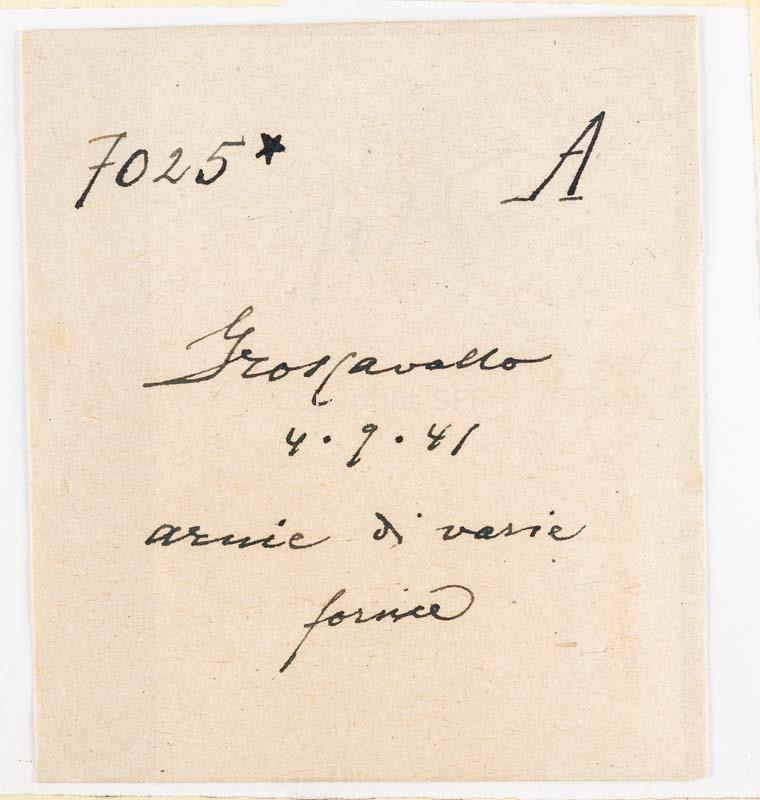 7025* A
Groscavallo
4.9.41
arnie di varie
forme